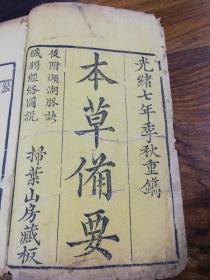 光緒七年季秋重鐫
本草備要
後附瀕湖脉訣
臟腑經絡圖説
掃葉山房藏板